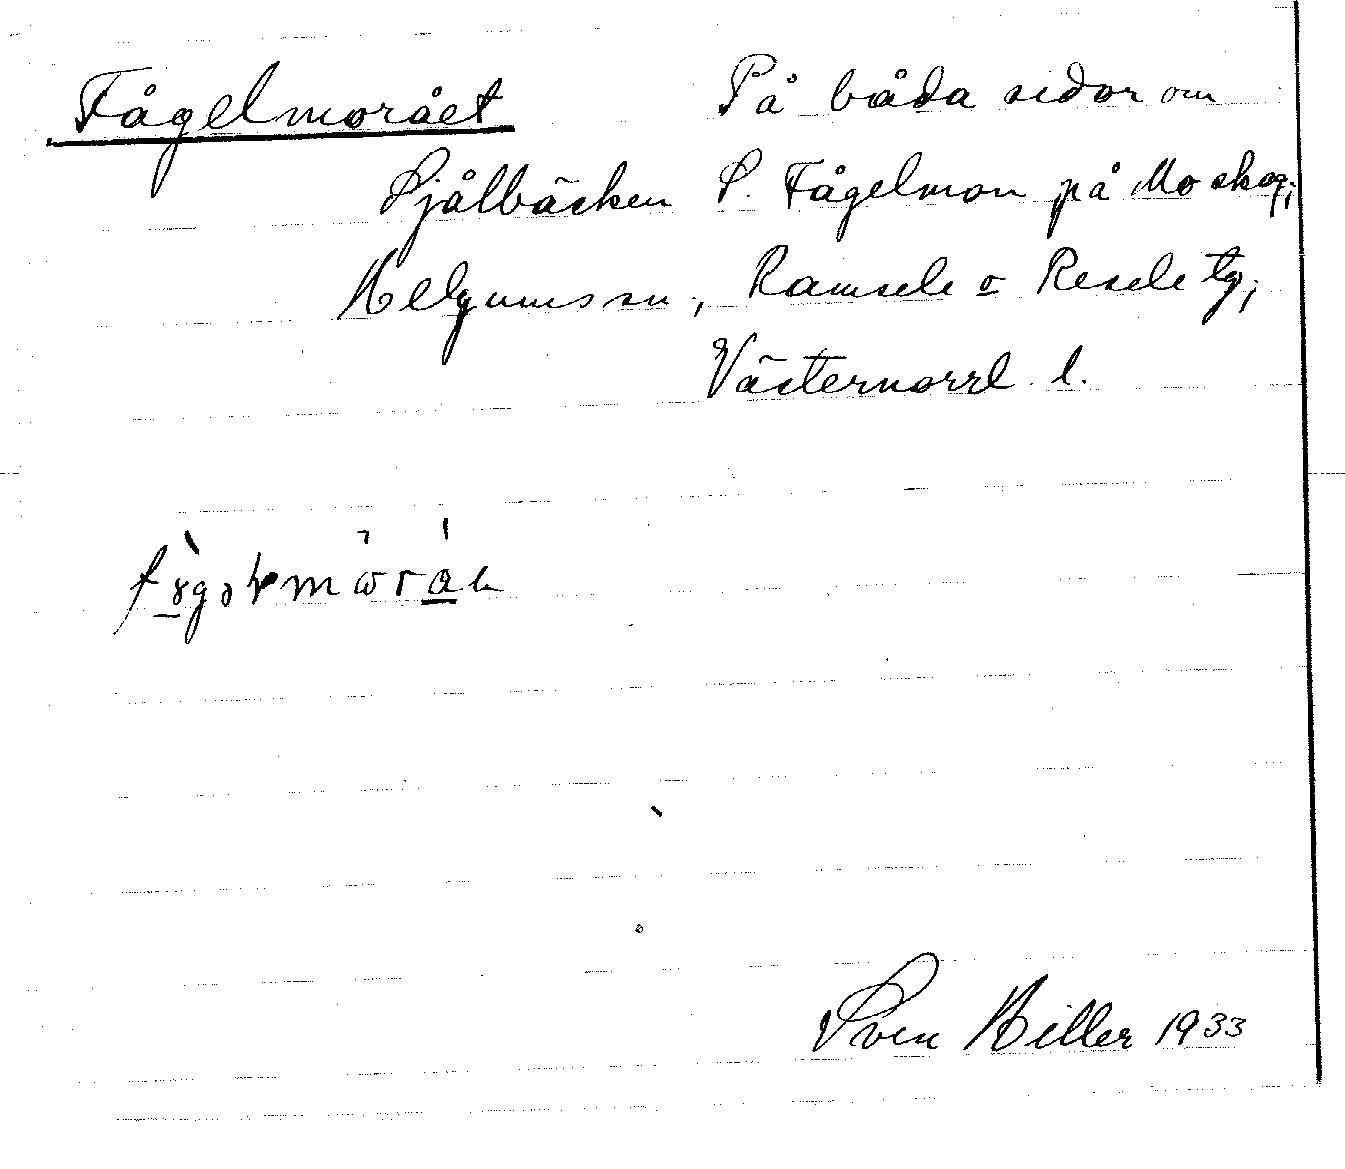 Fågelmorået På båda sidor om
Sjålbäcken S. Fågelmon på Mo skog;
Helgums sn, Ramsele o Resele tg;
Västernorrl. l.
Sven Hiller 1933